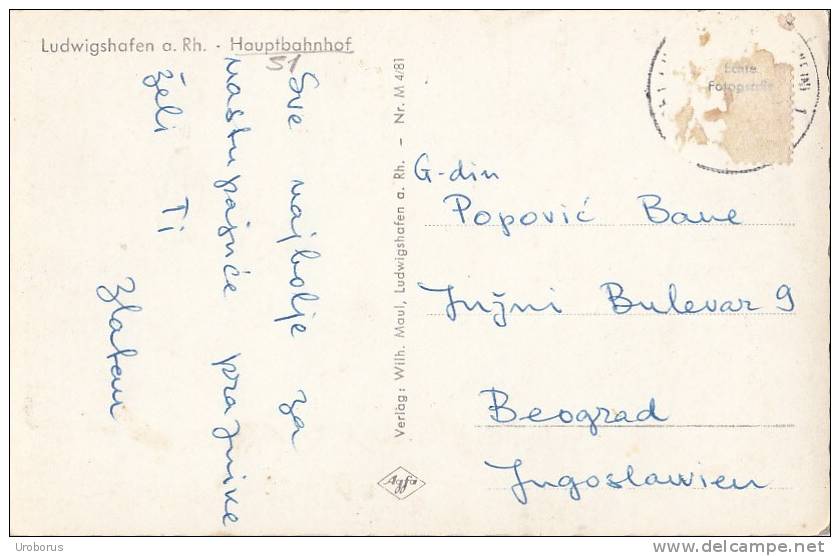 Ludwigshafen a. Rh. - Hauptbahnhof
51
Sve najbolje za
nastupajuće praznike
želi Ti
Zlatan
Verlag: Wilh. Maul, Ludwigshafen a. Rh. – Nr. M 4/81
Agfa
Echte
G-din
Popović Bane
Južni Bulevar 9
Beograd
Jugoslawien
Uroborus
www.delcampe.net